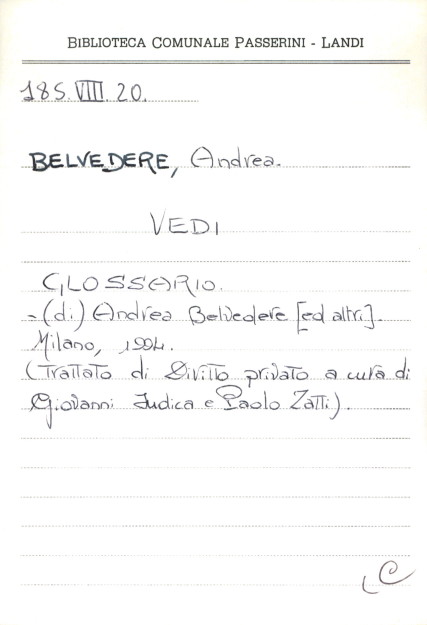 BIBLIOTECA COMUNALE PASSERINI - LANDI
185.VIII.20.
BELVEDERE, Andrea.
VEDI
GLOSSARIO.
-(di) Andrea Belvedere [ed altri].
Milano, 1994.
(Trattato di Diritto privato a cura di
Giovanni Iudica e Paolo Zatti).